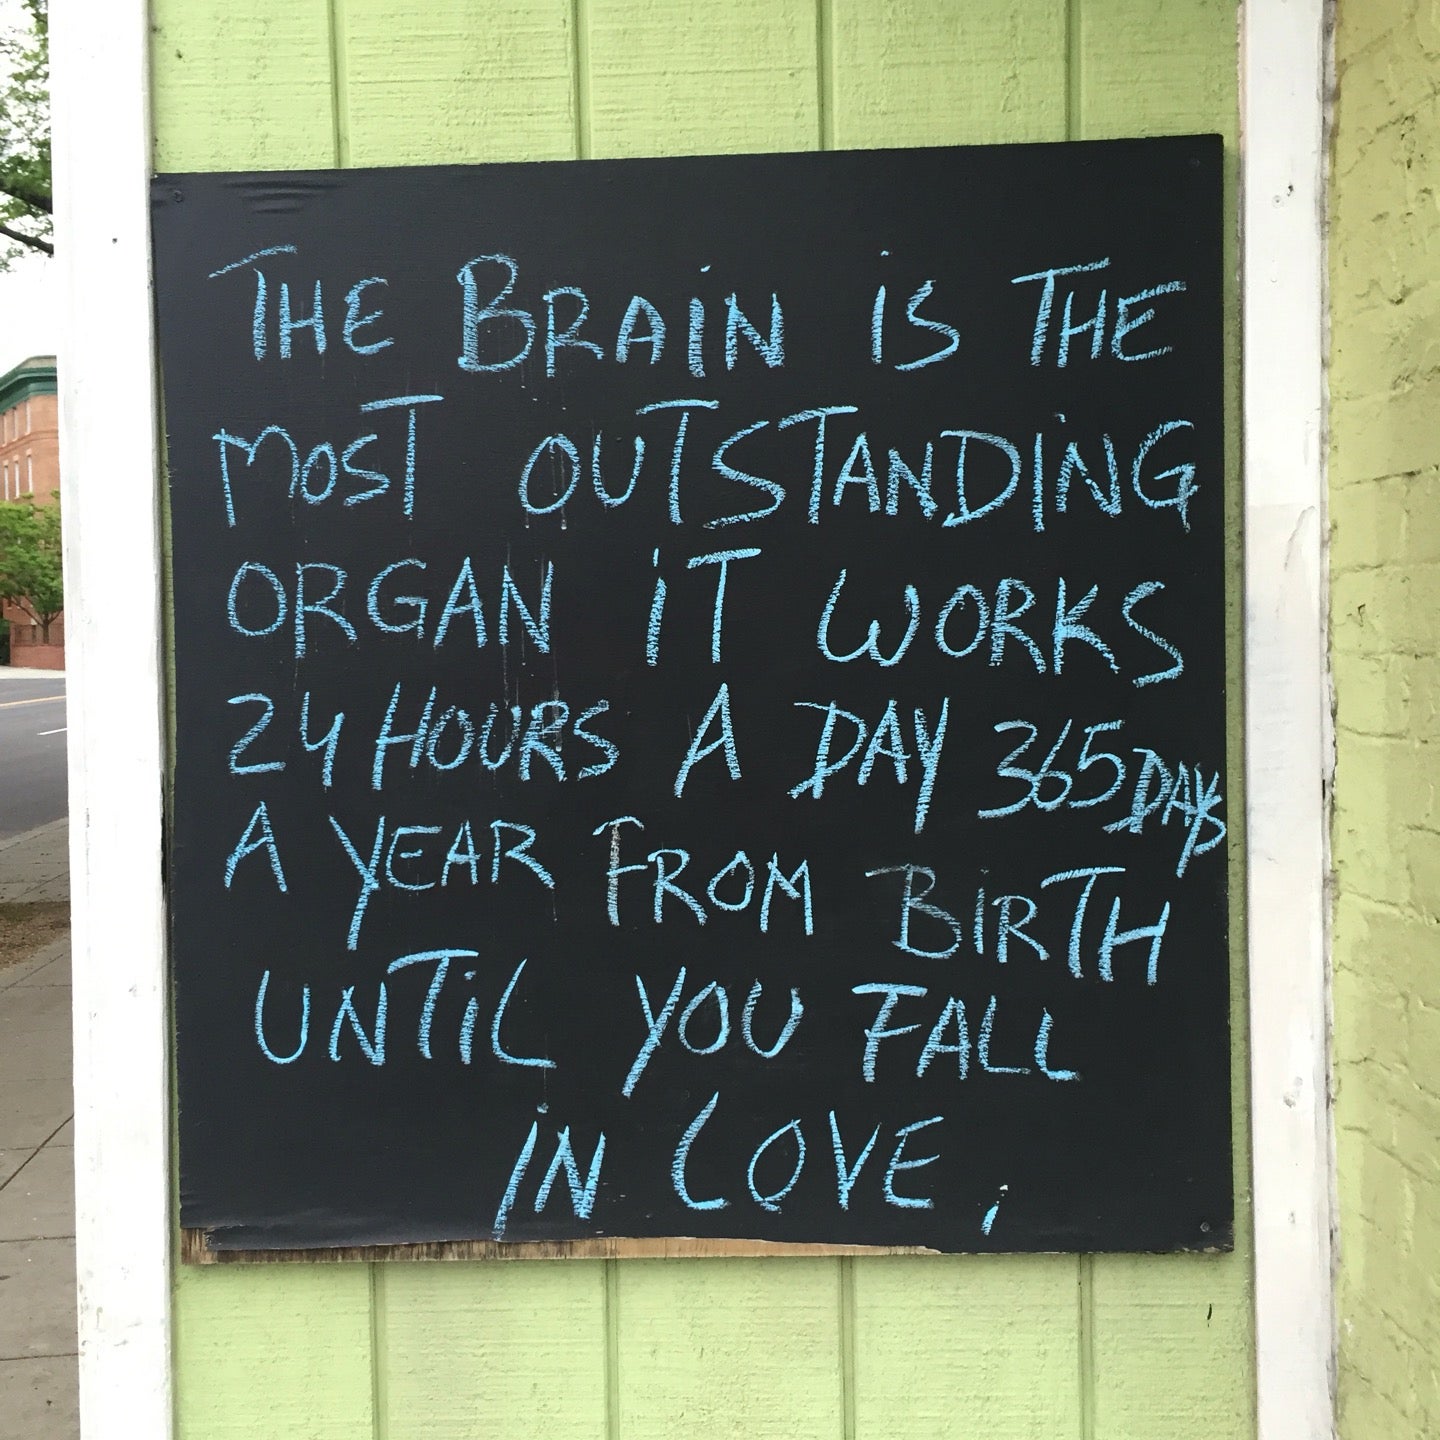 THE BRAIN IS THE
MOST OUTSTANDING
ORGAN IT WORKS
24 HOURS A DAY 365 DAYS
A YEAR FROM BIRTH
UNTIL YOU FALL
IN LOVE,